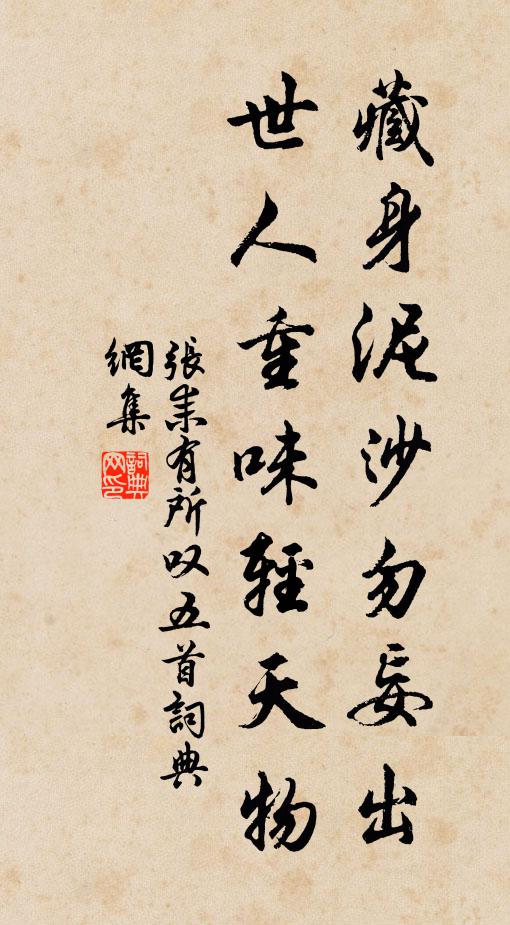 藏身泥沙勿妄出
世人重味輕天物
張耒有所叹五首詞典
網集
詞典
网印